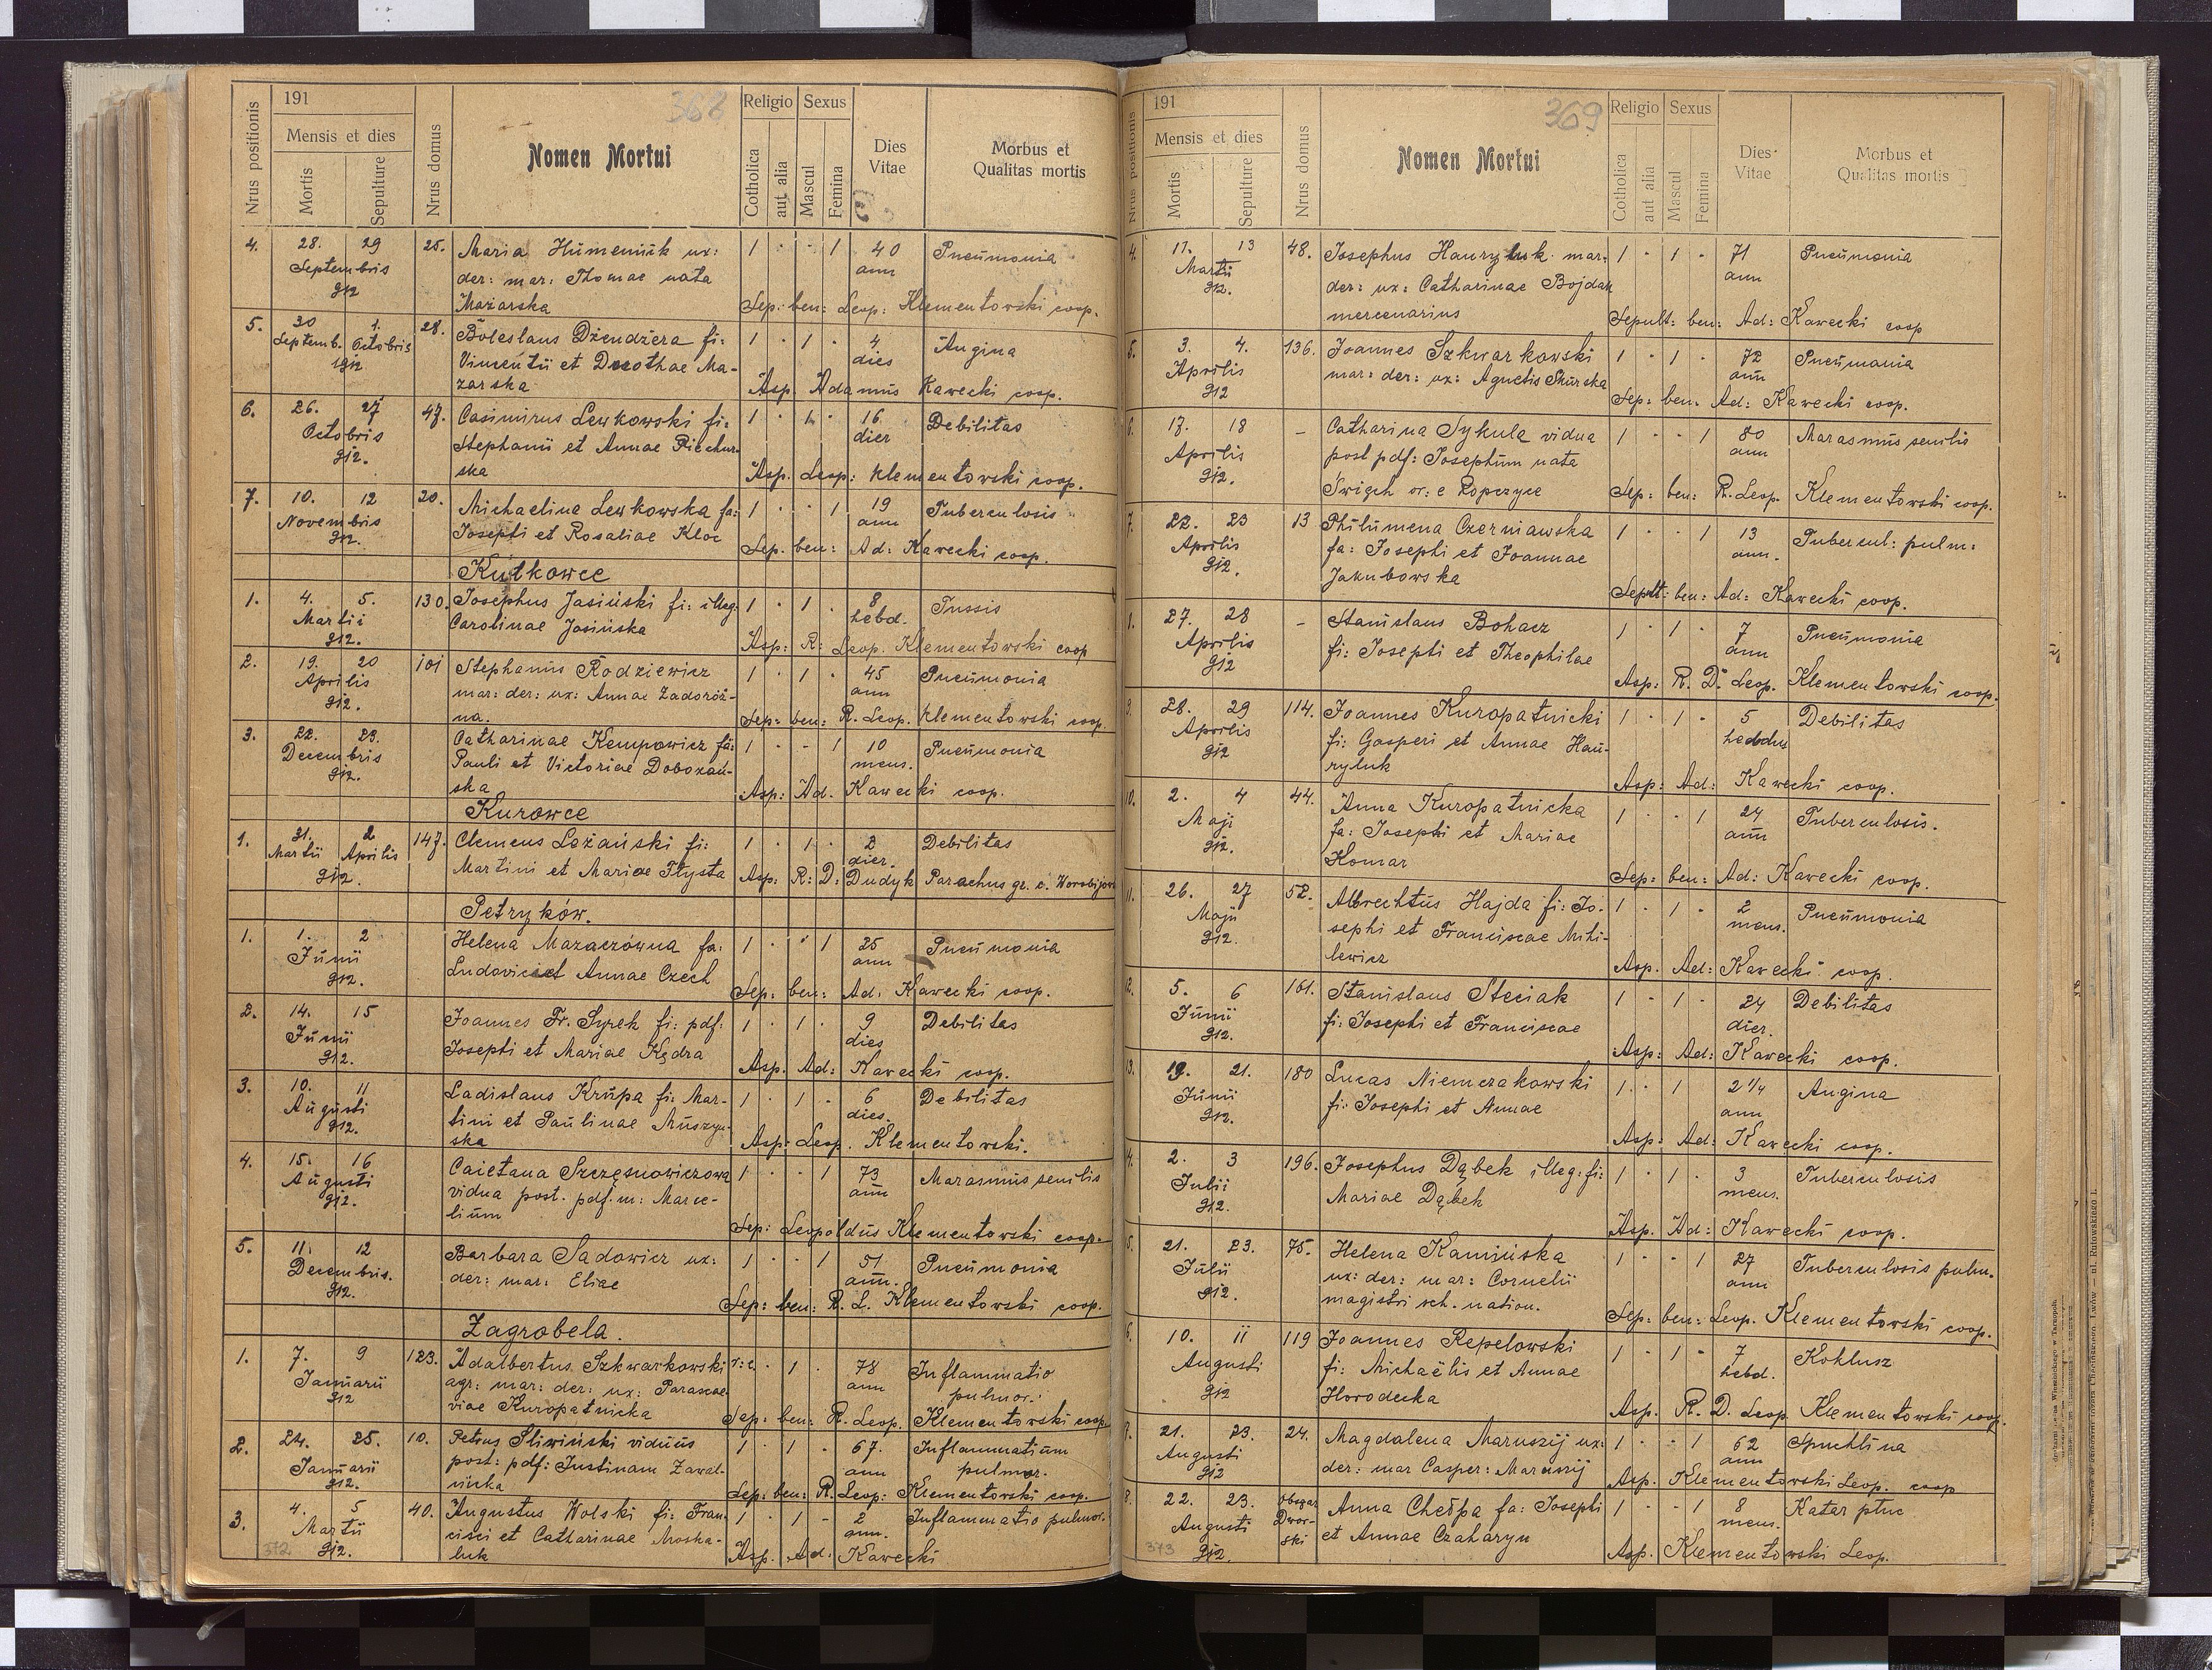 368
191
Nrus positionis
Mensis et dies
Mortis
Sepulture
Nrus domus
Nomen Mortui
Religio
Catholica
aut alia
Sexus
Mascul
Femina
Dies Vitae
Morbus et Qualitas mortis
4. 28. 29 Septembris 912 25. Maria Humeniuk ux: 1 · · 1 40 ann Pneumonia
der: mar: Thomae nata
Mazarska Sep: ben: Leop: Klementowski coop.
5. 30 Septemb. 1. Octobris 912 28. Boleslaus Dżendżera fi: 1 · 1 · 4 dies Angina
Vincentii et Dorothae Ma-
zarska Asp. Adamus Kawecki coop.
6. 26. 27 Octobris 912. 47. Casimirus Lewkowski fi: 1 · 1 · 16 dier Debilitas
Stephanii et Annae Piechur-
ska Asp. Leop: Klementowski coop.
7. 10. 12 Novembris 912. 20. Michaelina Lewkowska fa: 1 · · 1 19 ann Tuberculosis
Josephi et Rosaliae Kloc Sep. ben: Ad: Kawecki coop.
Kutkowce
1. 4. 5. Martii 912. 130. Josephus Jasiński fi: illeg. 1 · 1 · 8 hebd. Tussis
Carolinae Jasińska Asp: R: Leop. Klementowski coop
2. 19. 20 Aprilis 912. 101 Stephanus Rodziewicz 1 · 1 · 45 ann Pneumonia
mar: der: ux: Annae Zadoroż-
na. Sep: ben: R. Leop. Klementowski coop.
3. 22. 23. Decembris 912. Catharinae Kempowicz fa: 1 · - 1 10 mens. Pneumonia
Pauli et Victoriae Doboxań-
ska Asp: Ad. Kawecki coop.
Kurowce
1. 31. Martii 2 Aprilis 912. 147. Clemens Leżański fi: 1 · 1 · 2 dier. Debilitas
Martini et Mariae Ftysta Asp: R: D: Dudyk Parachus gr. c. Worobijow
Petryków.
1. 1. 2 Junii 912. Helena Mazaczówna fa: 1 · · 1 25 ann Pneumonia
Ludovici et Annae Czech Sep: ben: Ad. Kawecki coop.
2. 14. 15 Junii 912. Joannes Fr. Syrek fi: pdf: 1 · 1 · 9 dies Debilitas
Josephi et Mariae Kędra Asp. Ad: Kawecki coop.
3. 10. 11 Augusti 912. Ladislaus Krupa fi: Mar- 1 · 1 - 6 dies. Debilitas
tini et Paulinae Muszyn-
ska Asp: Leop. Klementowski.
4. 15. 16 Augusti 912. Caietana Szczęsnowiczowa 1 · · 1 73 ann Marasmus senilis
vidua post. pdf. m: Marce-
lium Sep: Leopoldus Klementowski coop.
5. 11. 12 Decembris. 912. Barbara Sadowicz ux: 1 · · 1 51 ann. Pneumonia
der: mar: Eliae Sep: ben: R. L. Klementowski coop.
Zagrobela.
1. 7. 9 Januarii 912 123. Adalbertus Szkwarkowski r: l. · 1 · 78 ann Inflammatio pulmor.:
agr: mar: der: ux: Parasce-
viae Kuropatnicka Sep: ben: R. Leop. Klementowski coop.
2. 24. 25. Januarii 912. 10. Petrus Sliwiński viduus 1 · 1 · 67. ann Inflammatium pulmor.
post: pdf: Justinam Zawal-
nicka Sep: ben: R. Leop: Klementowski coop.
3. 4. 5 Martii 912. 40. Augustus Wolski fi: Fran- 1 · 1 - 2 ann. Inflammatio pulmor.
cisci et Catharinae Moska-
luk Asp. Ad. Kawecki
372
369
191
Nrus positionis
Mensis et dies
Mortis
Sepulture
Nrus domus
Nomen Mortui
Religio
Catholica
aut alia
Sexus
Mascul
Femina
Dies Vitae
Morbus et Qualitas mortis
4. 11. 13 Martii 912. 48. Josephus Hauryluk mar: 1 · 1 · 71 ann Pneumonia
der: ux: Catharinae Bojdak
mercenarius Sepult: ben: Ad: Kawecki coop
5. 3. 4. Aprilis 912 136. Joannes Szkwarkowski 1 · 1 · 72 ann Pneumania
mar: der: ux: Agnetis Skurska Sep: ben: Ad: Kawecki coop.
6. 17. 18 Aprilis 912. - Catharina Sykula vidua 1 · · 1 80 ann Marasmus senilis
post pdf: Josephum nata
Swigch or: e Ropczyce Sep: ben: R. Leop. Klementowski coop.
7. 22. 23 Aprilis 912. 13 Philumena Czerniawska 1 · · 1 13 ann. Tubercul: pulm:
fa: Josephi et Joannae
Jakubowska Sepult: ben: Ad: Kawecki coop.
27. 28 Aprilis 912 - Stanislaus Bohacz 1 · 1 · 7 ann Pneumonia
fi: Josephi et Theophilae Asp: R. D. Leop. Klementowski coop.
9. 28. 29 Aprilis 912 114. Joannes Kuropatnicki 1 · 1 · 5 Debilitas
fi: Gasperi et Annae Hau-
ryluk Asp: Ad: Kawecki coop.
10. 2. 4 Maji 912. 44. Anna Kuropatnicka 1 · · 1 24 ann Tuberculosis.
fa: Josephi et Mariae
Komar Sep: ben: Ad: Kawecki coop.
11. 26. 27 Maji 912. 52. Albrechtus Hajda fi: Jo- 1 · 1 · 2 mens. Pneumonia
sephi et Franciscae Mihi-
lewicz Asp. Ad: Kawecki coop.
12. 5. 6 Junii 912. 161. Stanislaus Steciak 1 · 1 · 24 dier. Debilitas
fi: Josephi et Franciscae Asp: Ad: Kawecki coop.
13. 19. 21. Junii 912. 180 Lucas Niemczakowski 1 · 1 2 1/4 ann Angina
fi: Josephi et Annae Asp: Ad: Kawecki coop.
4. 2. 3 Julii 912. 196. Josephus Dąbek illeg: fi: 1 · 1 · 3 mens. Tuberculosis
Mariae Dąbek Asp. Ad: Kawecki coop.
5. 21. 23. Julii 912. 75. Helena Kamińska 1 · · 1 27 ann Tuberculosis pulm.
ux: der: mar: Cornelii
magistri sch. nation. Sep: ben: Leop. Klementowski coop.
6. 10. 11 Augusti 912 119 Joannes Repelowski 1 · 1 - 7 hebd. Kohlusz
fi: Michaëlis et Annae
Horodecka Asp. R. D. Leop. Klementowski coop.
21. 23. Augusti 912 24. Magdalena Maruszij ux: 1 · · 1 62 ann Spuchlina
der: mar Casper: Maruszij Asp. Klementowski Leop. coop
8. 22. 23. Augusti 912. Obszar Dwor-ski Anna Chełpa fa: Josephi 1 · · 1 8 mens. Katar płuc
et Annae Czaharyn Asp. Klementowski Leop.
373